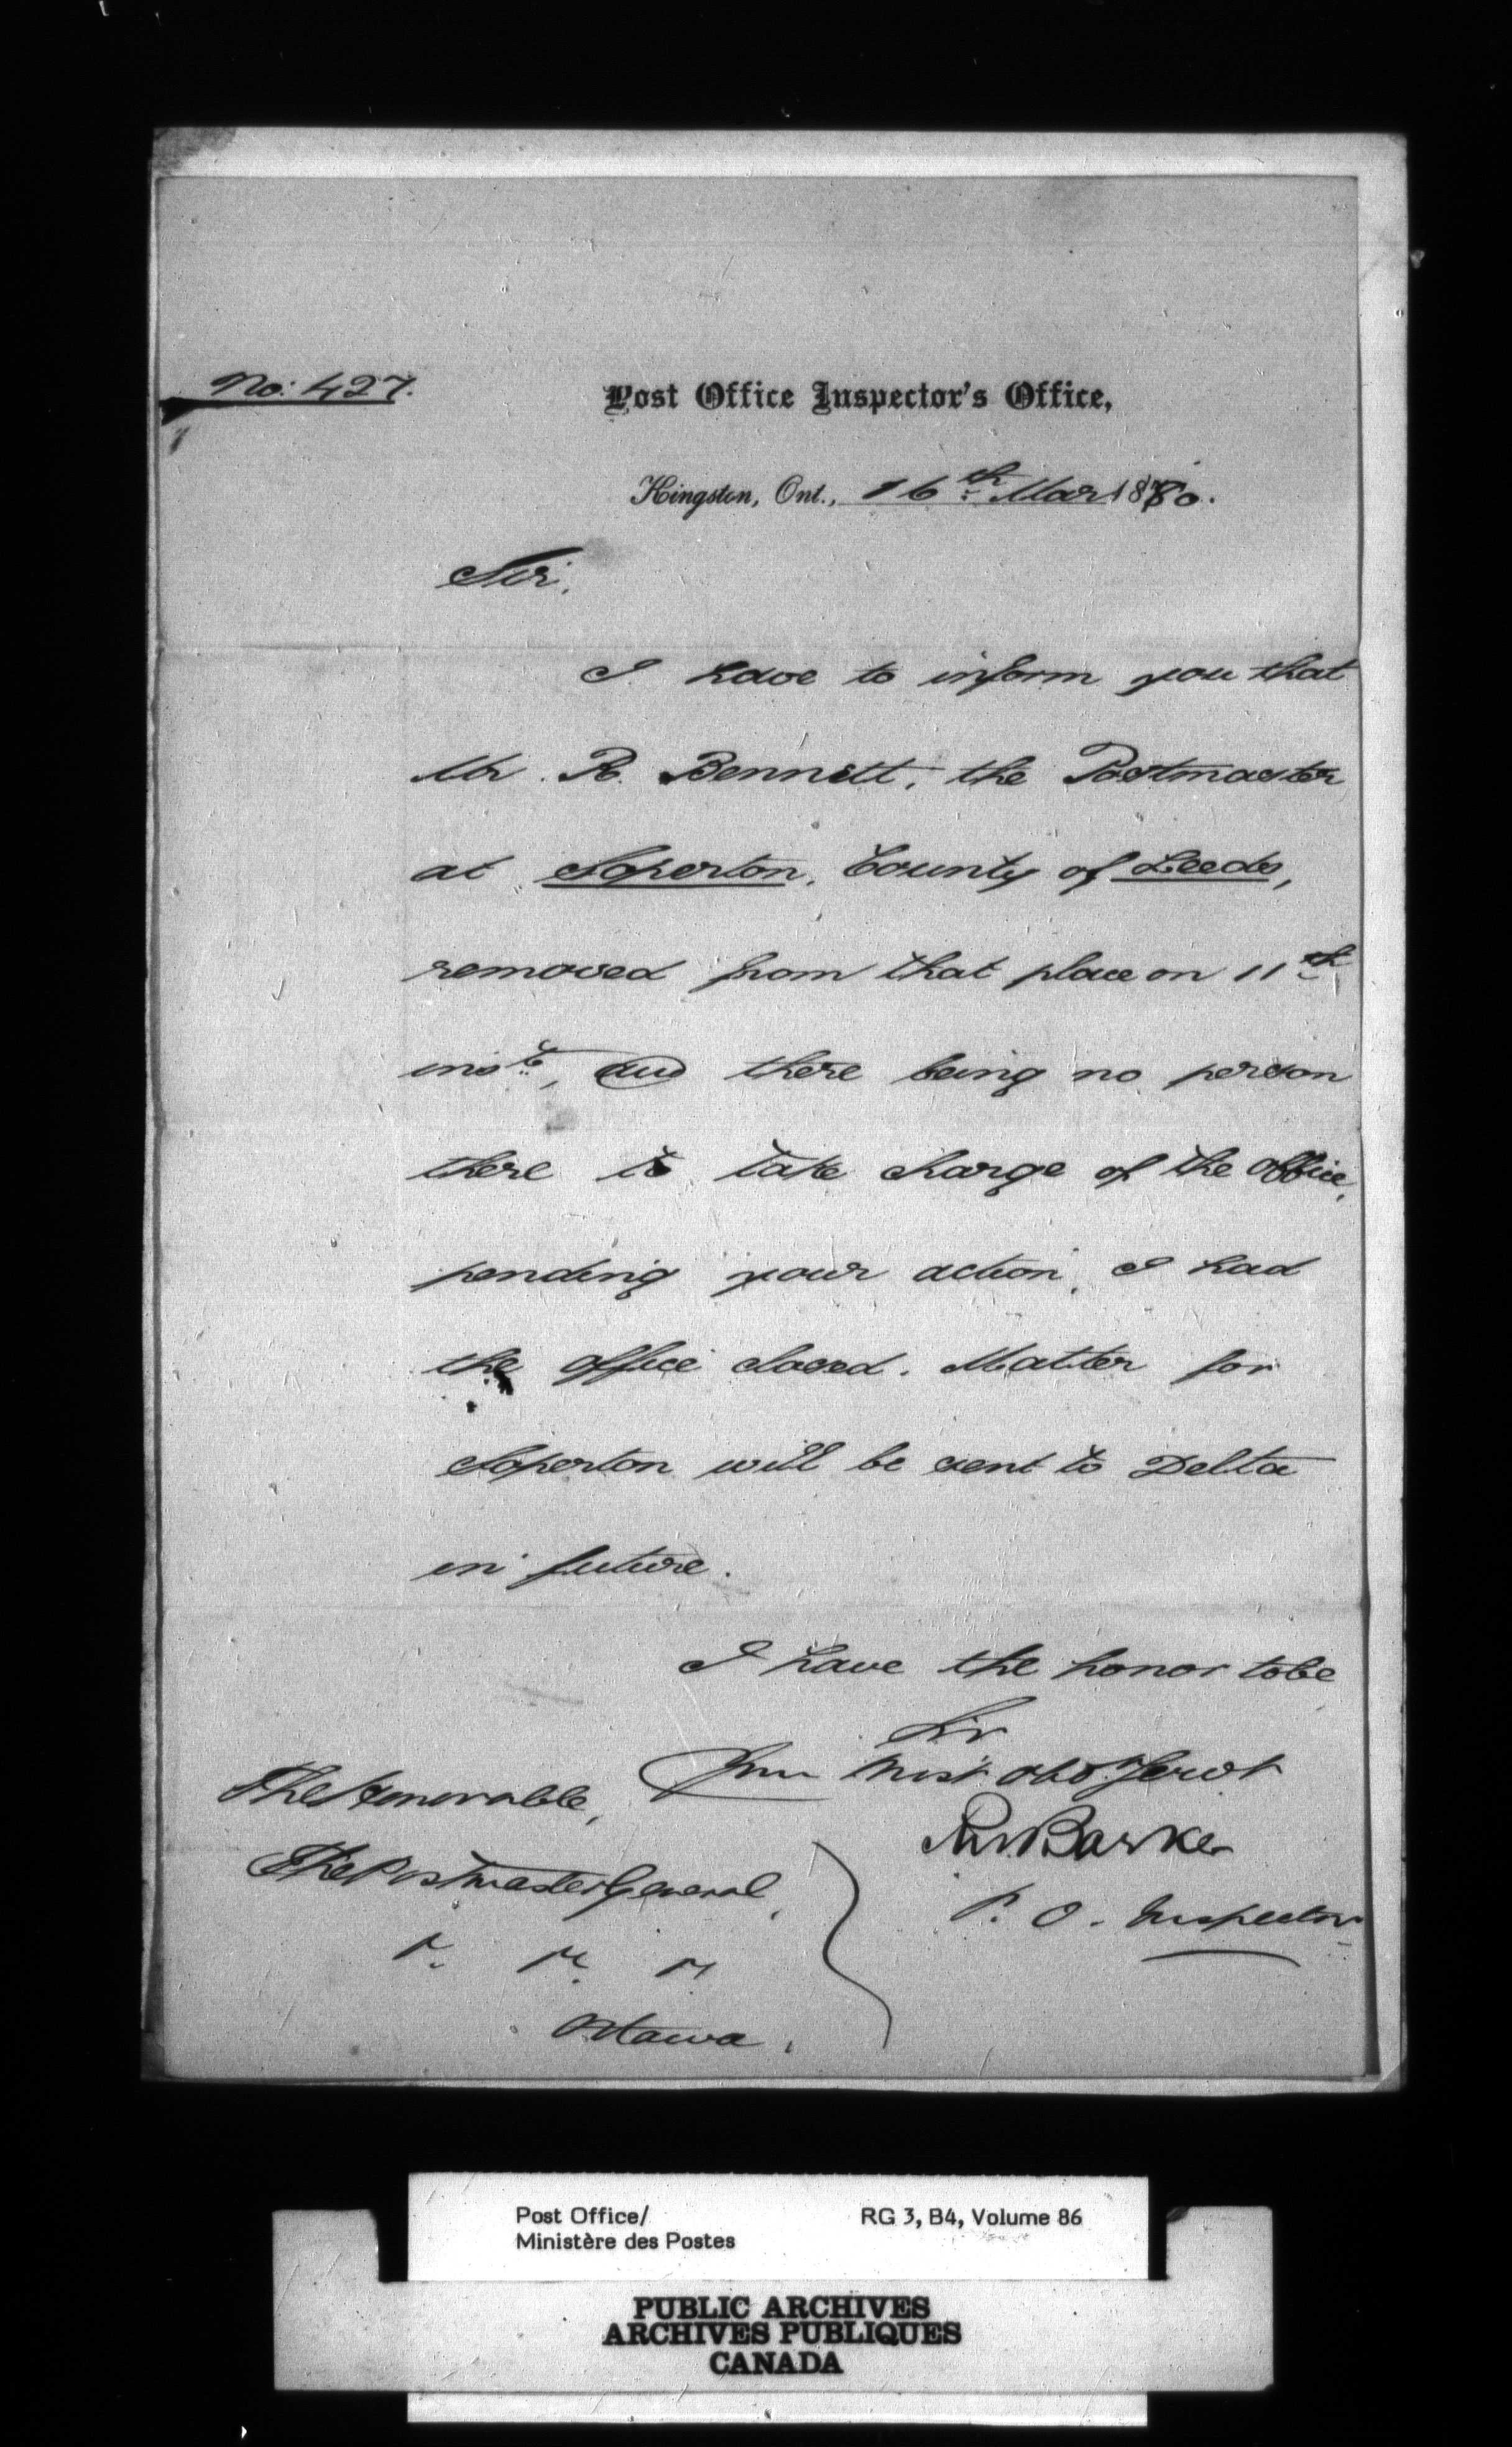 No. 427.
Post Office Inspector's Office,
Kingston, Ont., 16th Mar 1880.
Sir,
I have to inform you that
Mr. R. Bennett, the Postmaster
at Soperton, County of Leeds,
removed from that place on 11th
inst, and there being no person
there to take charge of the office,
pending your action, I had
the office closed. Matter for
Soperton will be sent to Delta
in future.
I have the honor to be
Sir
Your most obdt Servt
RWBarker
P. O. Inspector
The Honorable,
The Postmaster General,
Ottawa.
Post Office/
Ministère des Postes
RG 3, B4, Volume 86
PUBLIC ARCHIVES
ARCHIVES PUBLIQUES
CANADA